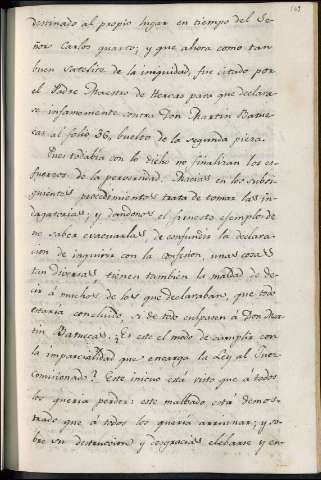 destinado al propio lugar en tiempo del Se-
ñor Carlos quarto; y que ahora como tan
buen satelite de la iniquidad, fue citado por
el Padre Maestro de para que declara-
se infamemente contra Don Martin
al folio 36, buelto de la segunda pieza.
Pues todabia con lo dicho no finalizan los es-
fuerzos de la perversidad. Macias en los subsi-
guientes procedimientos trata de tomar las in-
dagatorias; y dandonos el funesto exemplo de
no saber evacuarlas, de confundir la declara-
cion de inquirir con la confesion, unas cosas
tan diversas tienen tambien la maldad de de-
cir á muchos de los que declaraban, que todo
estaria concluido, si de todo culpasen á Don Mar-
tin. ¿Es este el modo de cumplir con
la imparcialidad que encarga la Ley al Juez
Comisionado? Este iniquo está visto que á todos
los queria perder: este malvado está demos-
trado que á todos los queria arruinar; y so-
bre su destruccion y desgracias elebarse y en-